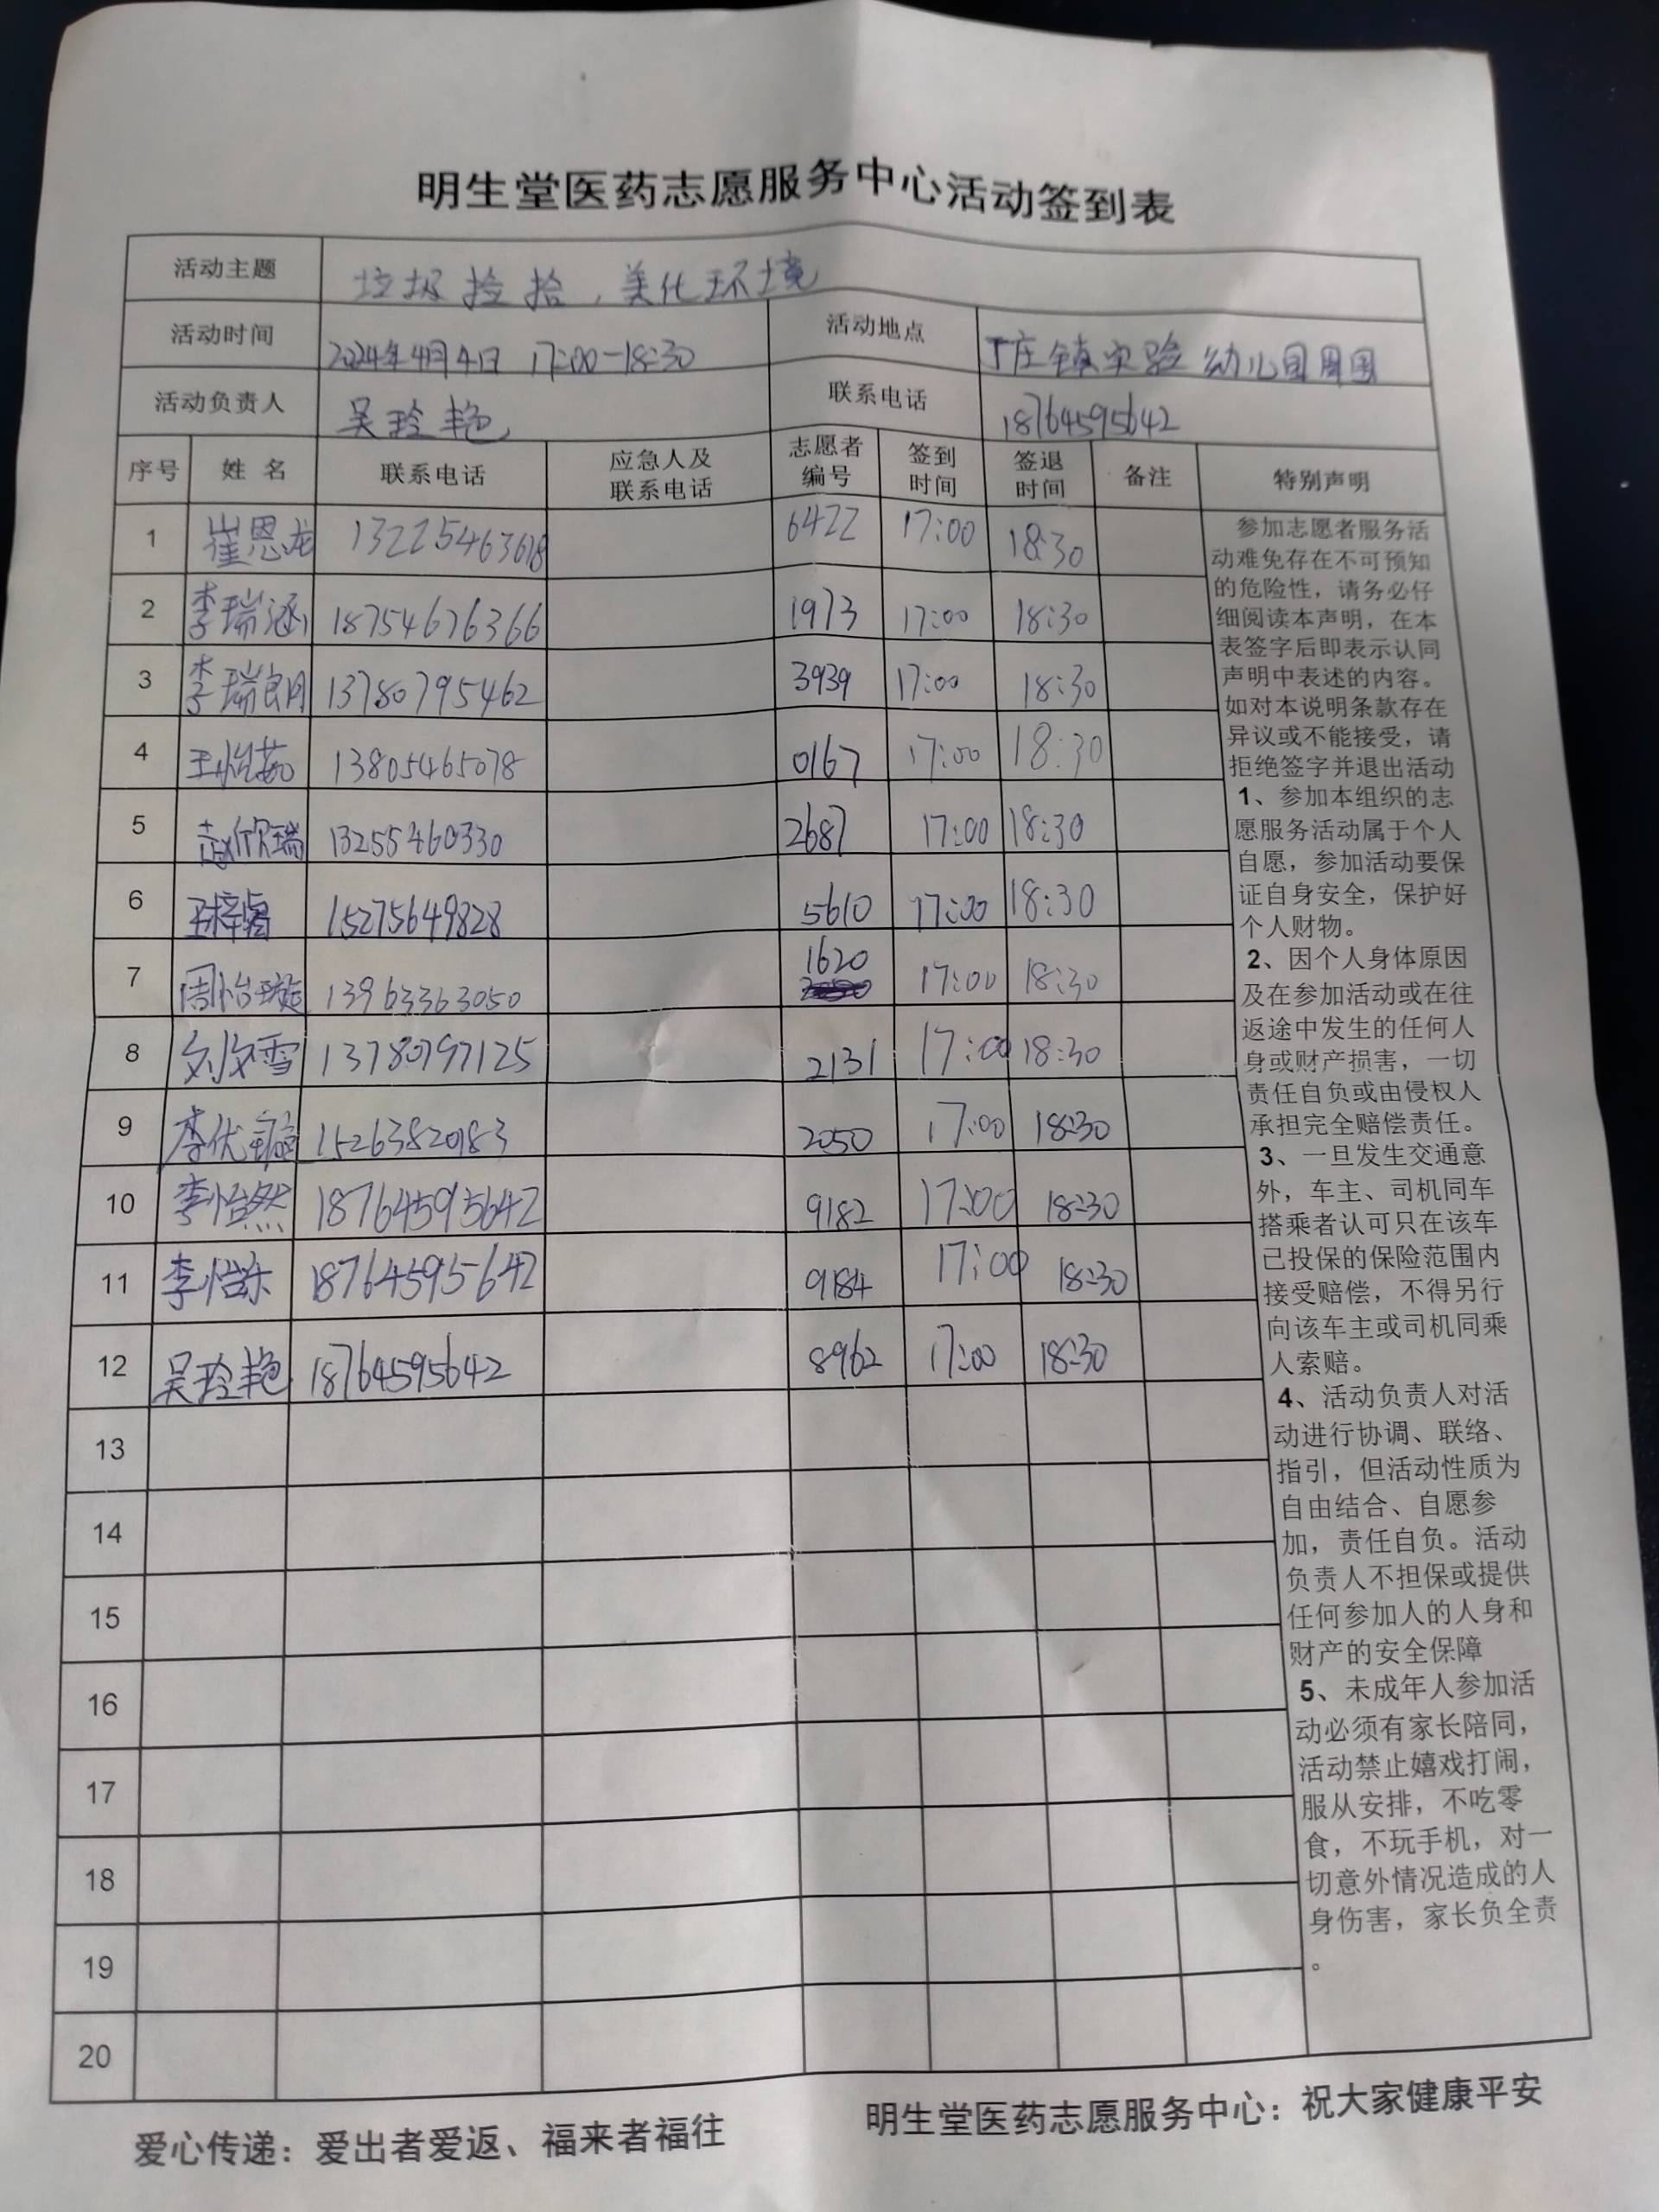 明生堂医药志愿服务中心活动签到表
活动主题 垃圾捡拾，美化环境
活动时间 2024年4月4日 17:00-18:30 活动地点 丁庄镇实验幼儿园周围
活动负责人 吴玲艳 联系电话 18764595642
序号 姓名 联系电话 应急人及联系电话 志愿者编号 签到时间 签退时间 备注 特别声明
1 崔恩龙 13225463618 6422 17:00 18:30
2 李瑞涵 18754676366 1973 17:00 18:30
3 李瑞 13780795462 3939 17:00 18:30
4 王怡茹 13805465078 0167 17:00 18:30
5 赵欣瑞 13255460330 2687 17:00 18:30
6 15275649828 5610 17:00 18:30
7 周怡璇 13963363050 1620 17:00 18:30
8 刘文雪 13780797125 2131 17:00 18:30
9 李优 15263820183 2050 17:00 18:30
10 李怡然 18764595642 9182 17:00 18:30
11 李怡乐 18764595642 9184 17:00 18:30
12 吴玲艳 18764595642 8962 17:00 18:30
13
14
15
16
17
18
19
20
参加志愿者服务活
动难免存在不可预知
的危险性，请务必仔
细阅读本声明，在本
表签字后即表示认同
声明中表述的内容。
如对本说明条款存在
异议或不能接受，请
拒绝签字并退出活动
1、参加本组织的志
愿服务活动属于个人
自愿，参加活动要保
证自身安全，保护好
个人财物。
2、因个人身体原因
及在参加活动或在往
返途中发生的任何人
身或财产损害，一切
责任自负或由侵权人
承担完全赔偿责任。
3、一旦发生交通意
外，车主、司机同车
搭乘者认可只在该车
已投保的保险范围内
接受赔偿，不得另行
向该车主或司机同乘
人索赔。
4、活动负责人对活
动进行协调、联络、
指引，但活动性质为
自由结合、自愿参
加，责任自负。活动
负责人不担保或提供
任何参加人的人身和
财产的安全保障
5、未成年人参加活
动必须有家长陪同，
活动禁止嬉戏打闹，
服从安排，不吃零
食，不玩手机，对一
切意外情况造成的人
身伤害，家长负全责
。
爱心传递：爱出者爱返、福来者福往 明生堂医药志愿服务中心：祝大家健康平安